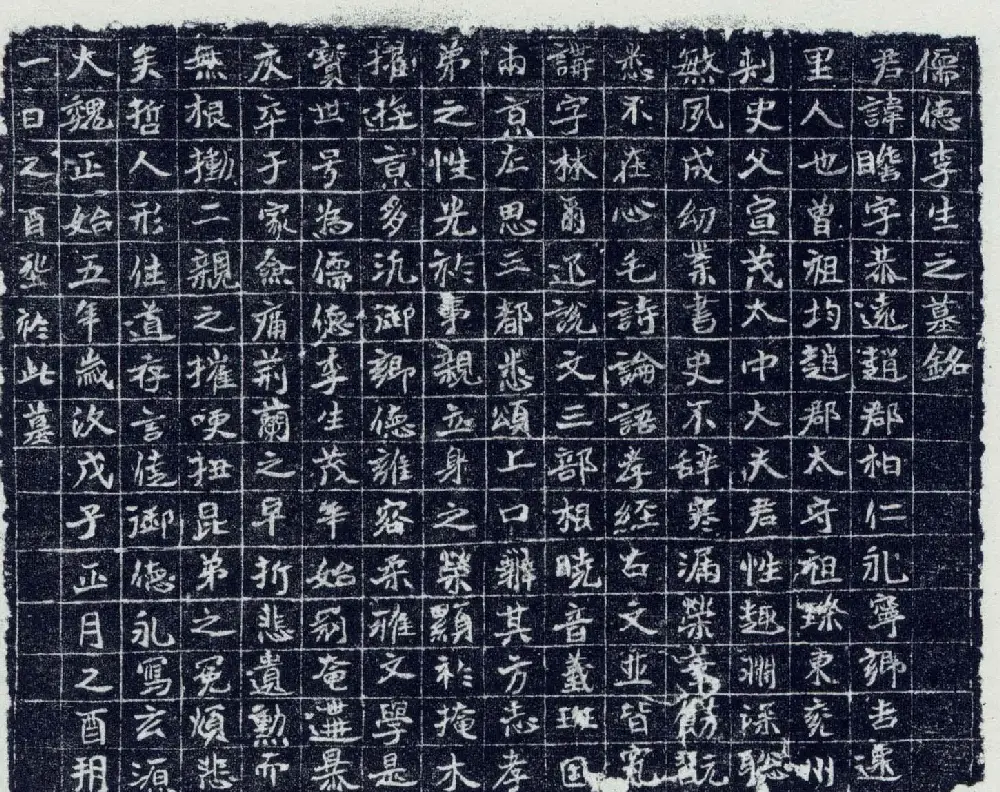 儒德李生之墓銘
君諱瞻字恭遠趙郡柏仁永寧鄉吉遷
里人也曾祖均趙郡太守祖璨東兗州
刺史父宣茂太中大夫君性趣淵深聡
慜夙成幼業書史不辞寒漏榮飭翫
悉不在心毛詩論語孝經古文並皆究
講字林爾迊說文三部相曉音義班固
兩京左思三都悉頌上口辧其方志孝
弟之性光於事親立身之榮顯於掩木
擢遊京多鄉德雍容柔雅文學是
寶世号為儒德李生茂年始奄遘暴
疾卒于家僉痛荊蘭之早折悲遺勲而
無根慟二親之摧哽扭昆弟之冤煩悲
矣哲人形住道存言德永寫玄源
大魏正始五年歲次戊子正月之酉朔
一日之酉塟於此墓